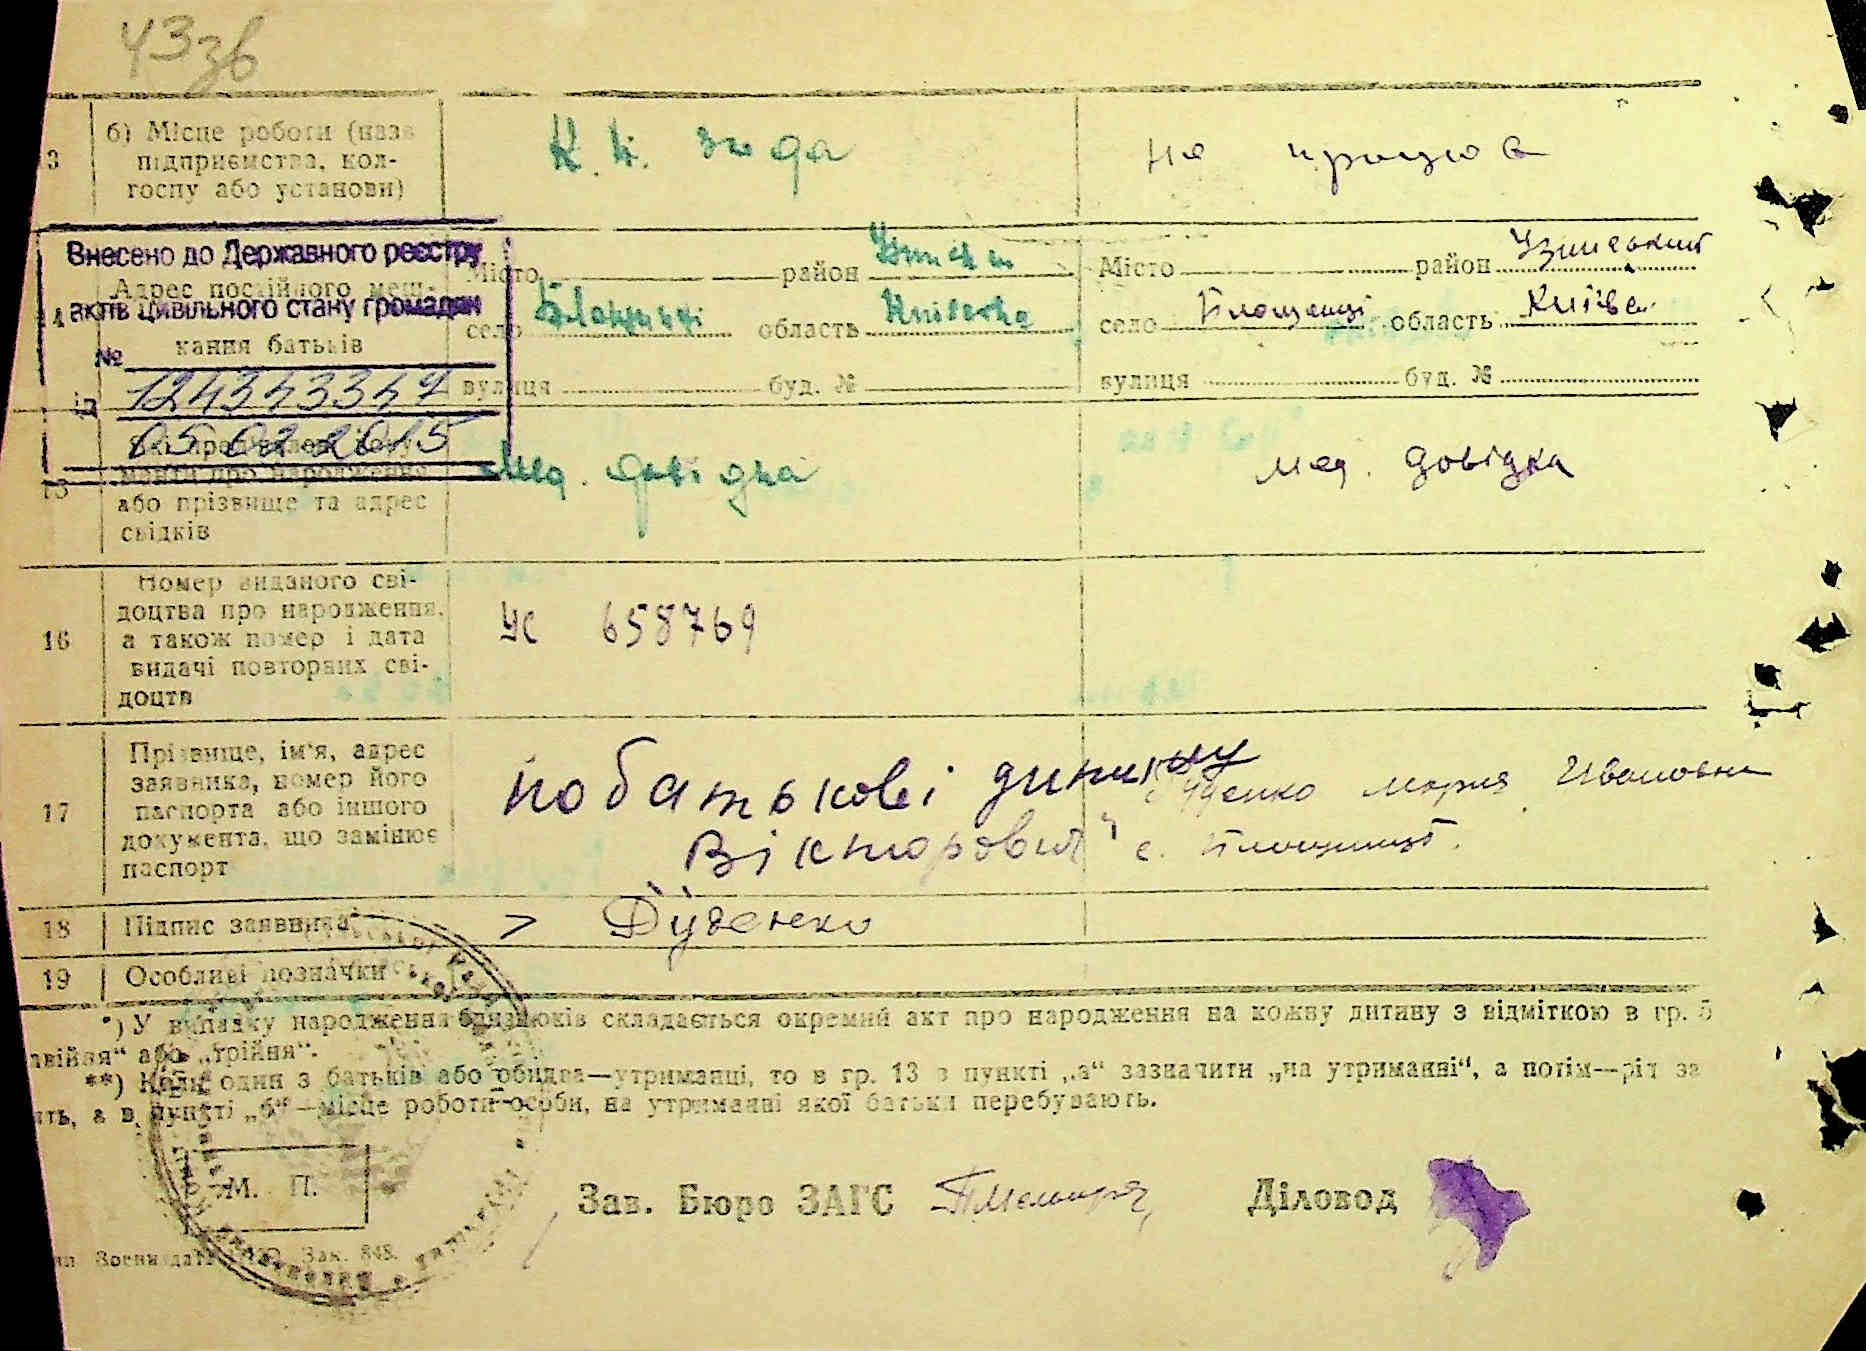 43зв
3
б) Місце роботи (назв
підприємства, кол-
госпу або установи)
не працює
Внесено до Державного реєстру
актів цивільного стану громадян
№ 124343347
05 02 2015
Адрес постійного меш-
кання батьків
Місто район
село область Київська
вулиця буд. №
Місто район Узинський
село область Київс
вулиця буд. №
або прізвище та адрес
свідків
мед. довідка
мед. довідка
16
Номер виданого сві-
доцтва про народження,
а також номер і дата
видачі повторних сві-
доцтв
УС 658769
17
Прізвище, ім'я, адрес
заявника, номер його
паспорта або іншого
документа, що замінює
паспорт
по батькові дитини
"Вікторович"
Дуденко Мария Ивановна
с.
18
Підпис заявника
> Дуденко
19
Особливі позначки
*) У випадку народження близнюків складається окремий акт про народження на кожну дитину з відміткою в гр. 5
двійня" або „трійня".
**) Коли один з батьків або обидва—утриманці, то в гр. 13 в пункті „а" зазначити „на утриманні", а потім—рід за
ть, а в пункті „б"—місце роботи особи, на утриманні якої батьки перебувають.
М. П.
Зав. Бюро ЗАГС
Діловод
Зак. 848.